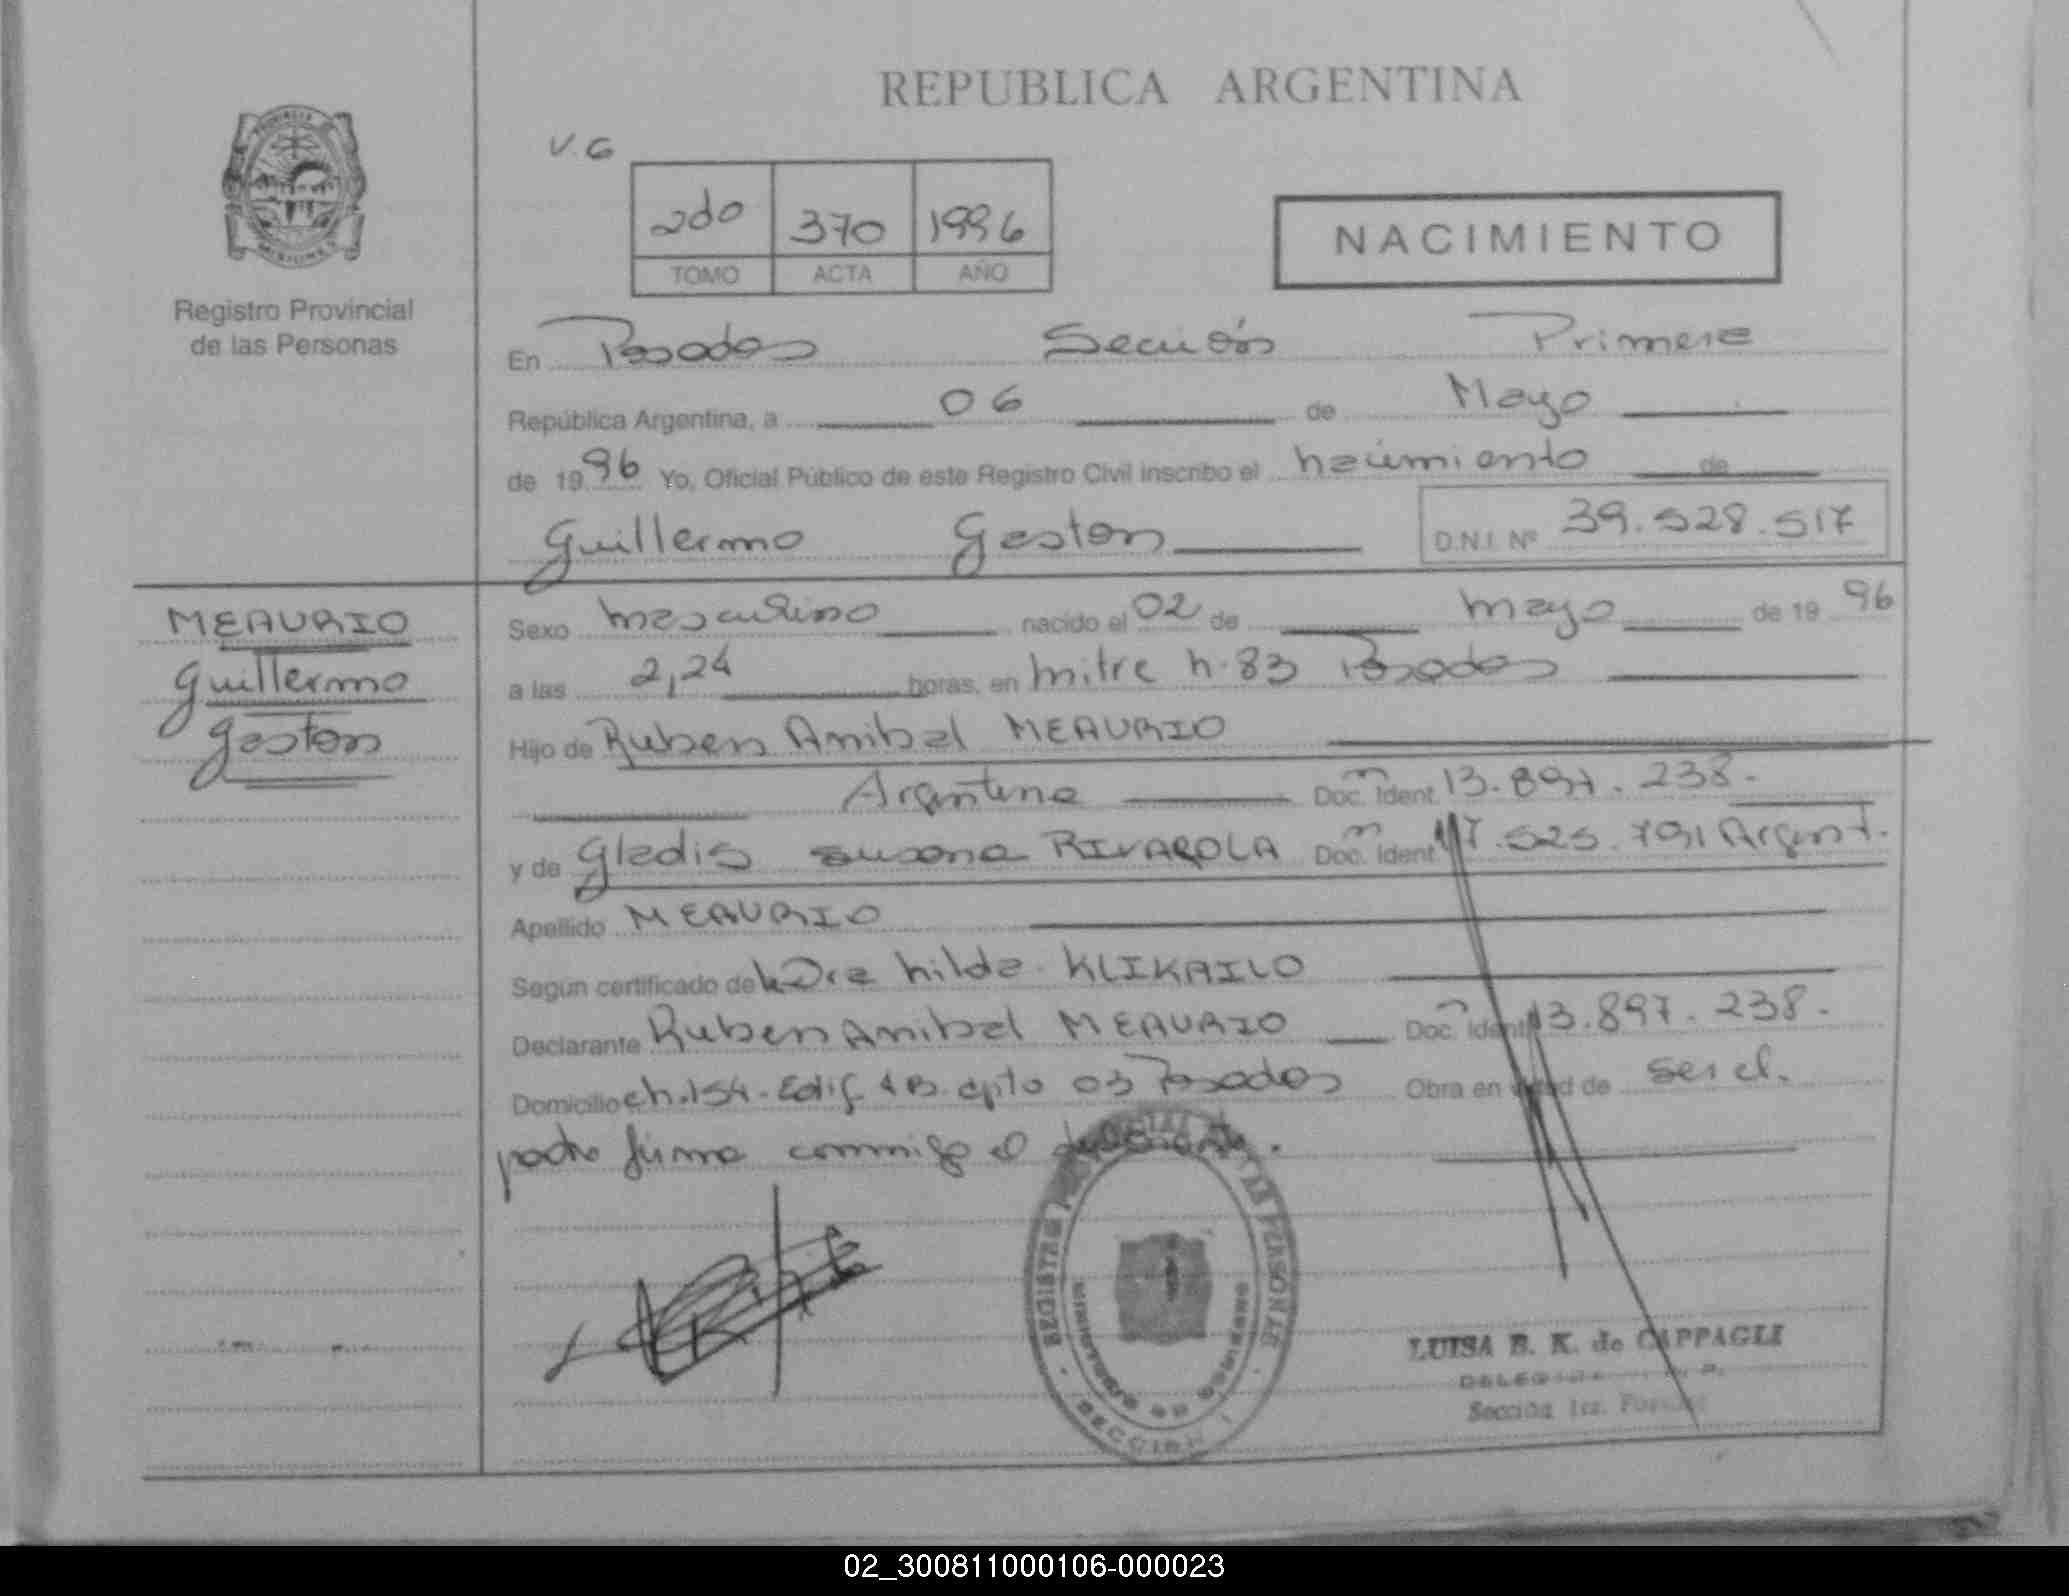 REPUBLICA ARGENTINA
V.G
2do 370 1996
TOMO ACTA AÑO
NACIMIENTO
PROVINCIA DE
MISIONES
Registro Provincial
de las Personas
En Posadas Sección Primera
República Argentina, a 06 de Mayo
de 1996 Yo, Oficial Público de este Registro Civil inscribo el nacimiento de
Guillermo Gaston D.N.I. Nº 39.528.517
MEAURIO
Guillermo
Gaston
Sexo masculino nacido el 02 de mayo de 1996
a las 2,24 horas, en mitre n.83 Posadas
Hijo de Ruben Anibal MEAURIO
Argentina Doc. Ident. 13.897.238.
y de Gladis Susana RIVAROLA Doc. Ident. 17.525.791 Argent.
Apellido MEAURIO
Según certificado de la Dra hilda KLIKAILO
Declarante Ruben Anibal MEAURIO Doc. Ident. 13.897.238.
Domicilio ch.154-Edif 4B. dpto 03 Posadas Obra en virtud de ser el
padre firma conmigo el declarante.
REGISTRO PROVINCIAL DE LAS PERSONAS
MINISTERIO DE GOBIERNO
SECCION 1
LUISA B. K. de CAPPAGLI
Sección 1ra. Posadas
02_300811000106-000023